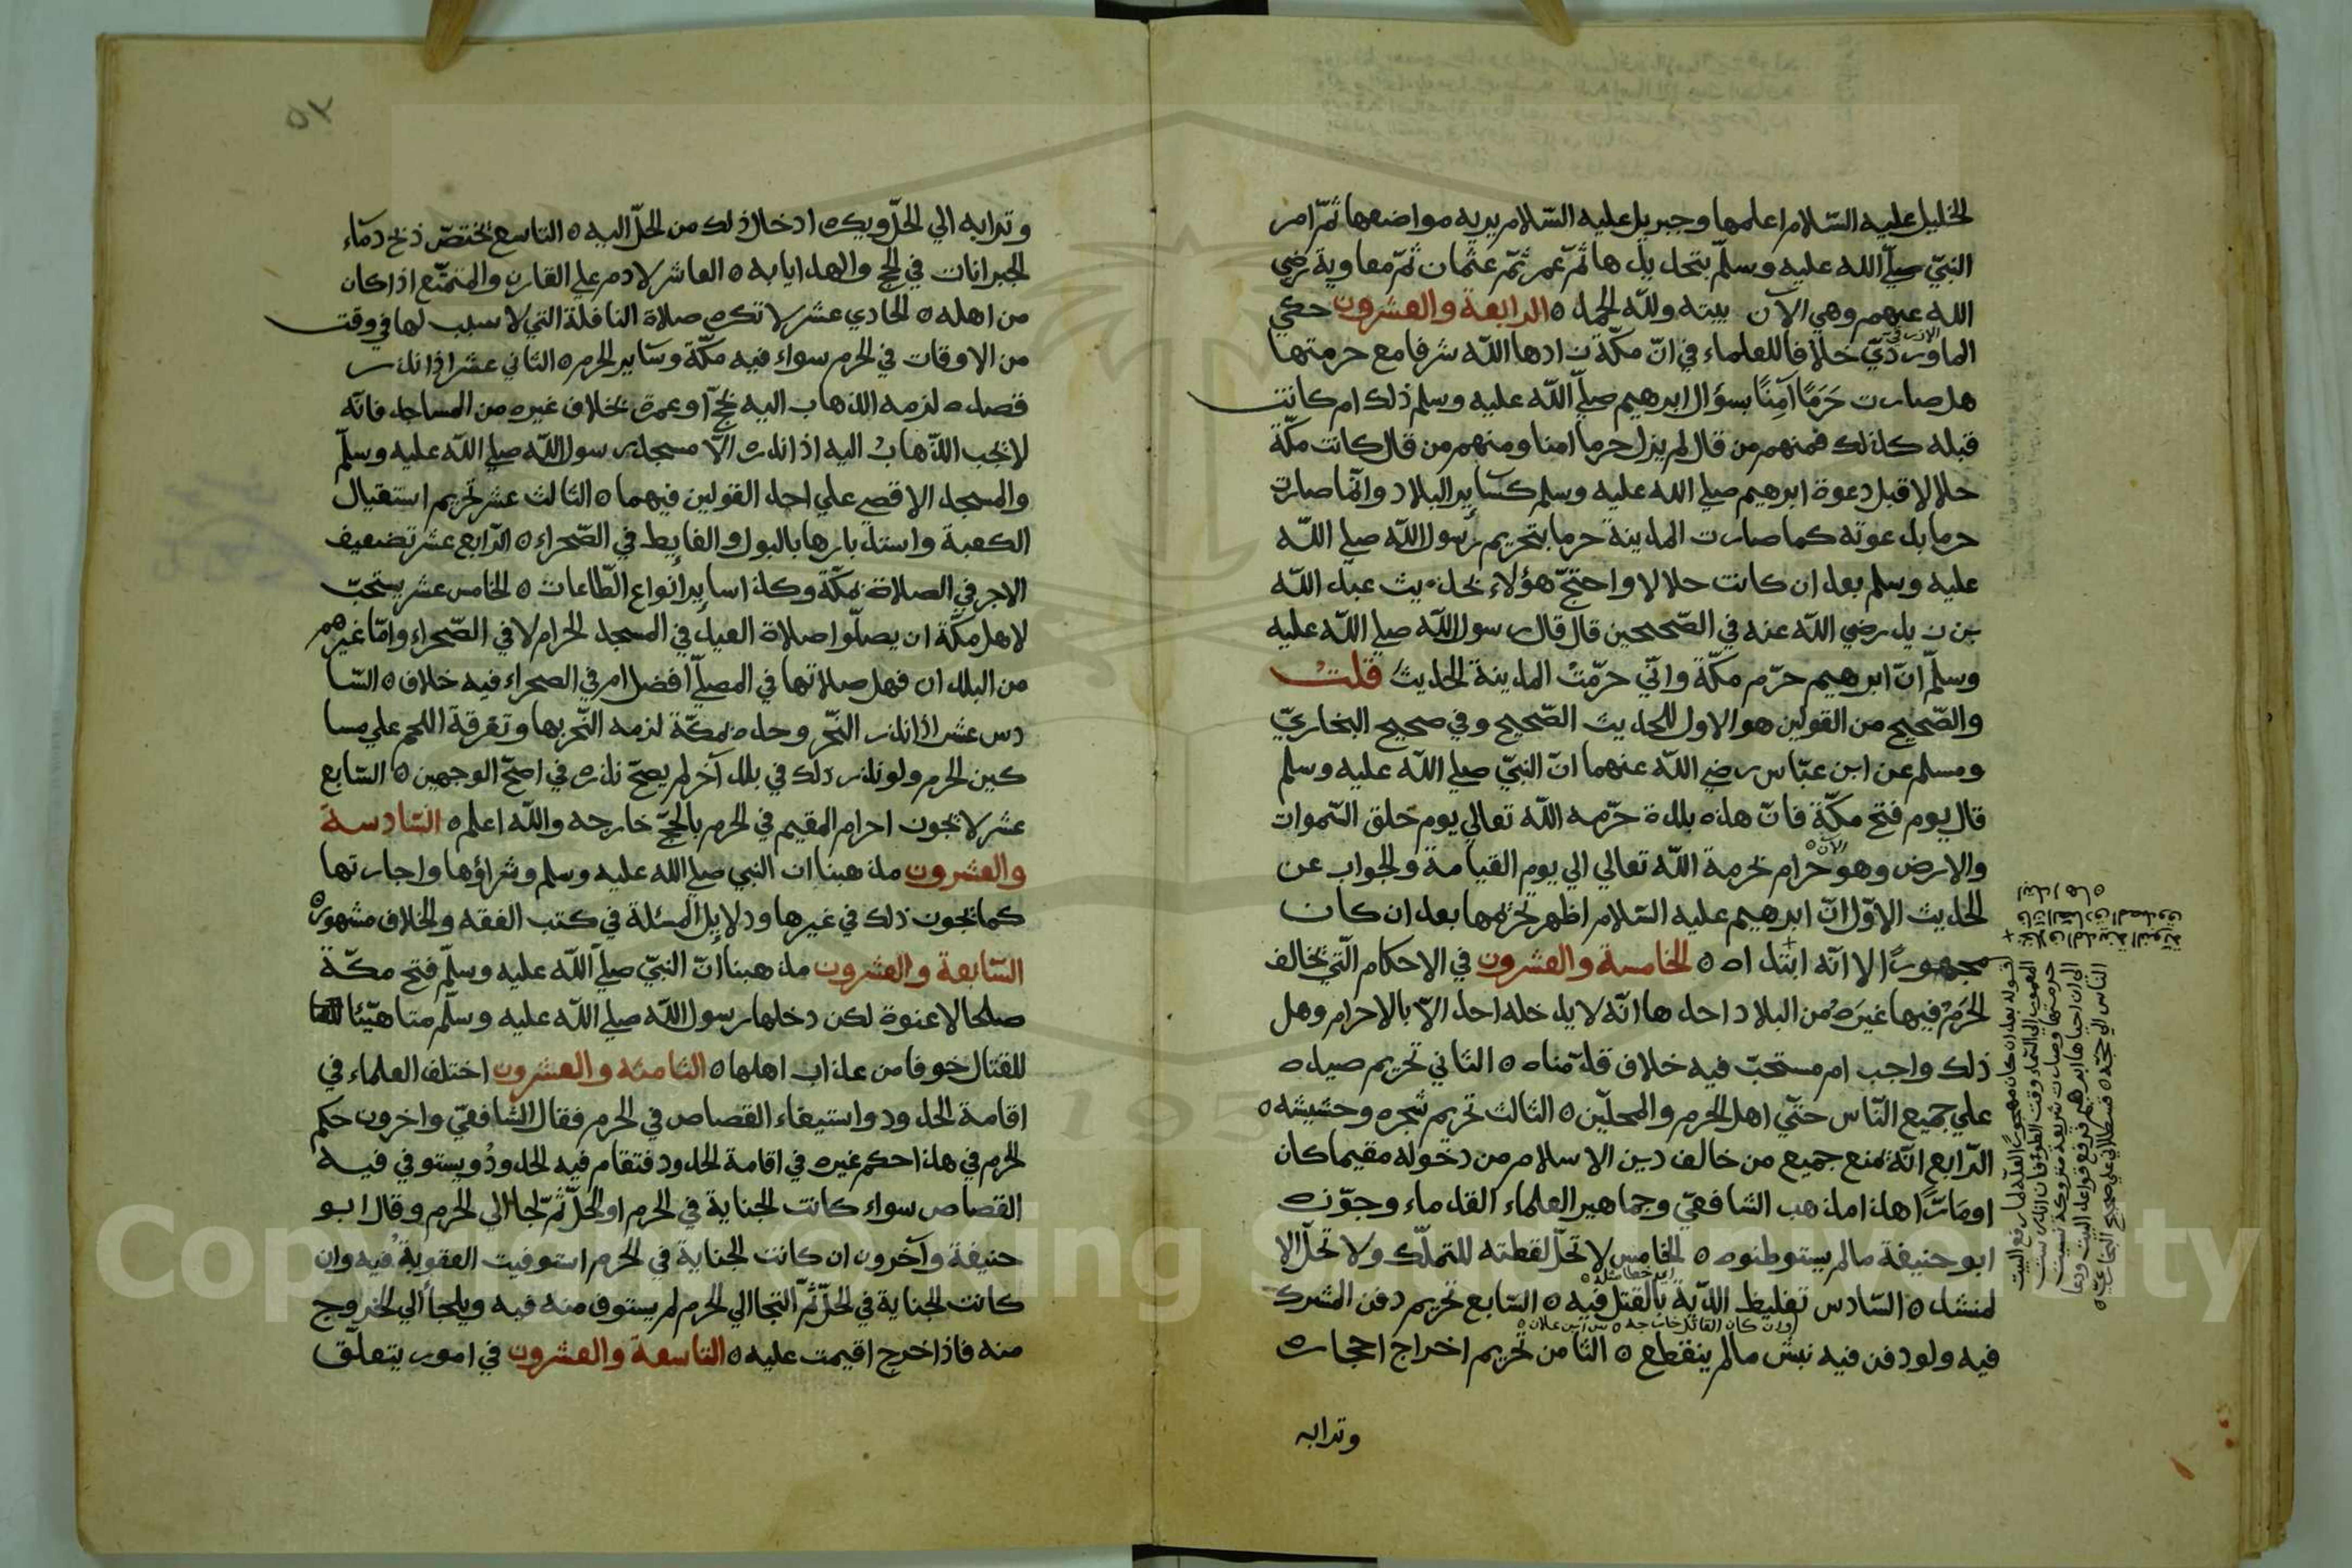 الخليل عليه السّلام اعلمها وجبريل عليه السّلام يريه مواضعها ثمّ امر
النبيّ صلّي الله عليه وسلّم بتحديدها ثمّ عمر ثمّ عثمان ثمّ معاوية رضي
الله عنهم وهي الآن بينة ولله الحمد ه الرابعة والعشرون حكي
الازرقي
الماوردي خلافا للعلماء في انّ مكّة زادها اللّه شرفا مع حرمتها
هل صارت حَرَمًا آمِنًا بسؤال ابرهيم صلّي اللّه عليه وسلم ذلك ام كانت
قبله كذلك فمنهم من قال لم يزل حرما امنا ومنهم من قال كانت مكّة
حلالا قبل دعوة ابرهيم صلي الله عليه وسلم كسائر البلاد وانّما صارت
حرما بدعوته كما صارت المدينة حرما بتحريم رسول اللّه صلي اللّه
عليه وسلم بعد ان كانت حلالا واحتجّ هؤلاء بحديث عبد اللّه
بن زيد رضي اللّه عنه في الصّحيحين قال قال رسول اللّه صلي اللّه عليه
وسلّم انّ ابرهيم حرّم مكّة وانّي حرّمتُ المدينة الحديث قلت
والصّحيح من القولين هو الاول للحديث الصّحيح وفي صحيح البخاريّ
ومسلم عن ابن عبّاس رضي اللّه عنهما انّ النبيّ صلي اللّه عليه وسلم
قال يوم فتح مكّة فانّ هذه بلدة حرّمه اللّه تعالي يوم خلق السّموات
والارض وهو حرام بحرمة اللّه تعالي الي يوم القيامة والجواب عن
الحديث الاوّل انّ ابرهيم عليه السّلام اظهر تحريمها بعد ان كان
مهجورًا لا انّه ابتداه ه الخامسة والعشرون في الاحكام الّتي يخالف
الحَرَمُ فيها غيرَه من البلاد احدها انّه لا يدخله احد الاّ بالاحرام وهل
ذلك واجب ام مستحبّ فيه خلاف قدّمناه ه الثاني تحريم صيده
علي جميع النّاس حتّي اهل الحرم والمحلّين ه الثالث تحريم شجره وحشيشه ه
الرّابع انّه يمنع جميع من خالف دين الاسلام من دخوله مقيما كان
او مَارًّا هذا مذهب الشافعيّ وجماهير العلماء القدماء وجوّزه
ابو حنيفة مالم يستوطنوه ه الخامس لا تحلّ لقطته للتملّك ولا تحلّ الا
لمنشد ه السّادس تغليظ الدّية بالقتل فيه ه السّابع تحريم دفن المشرك
فيه ولو دفن فيه نبش مالم ينقطع ه الثامن تحريم اخراج احجاره
وترابه
وترابه الي الحلّ ويكره ادخال ذلك من الحلّ اليه ه التاسع يختصّ ذبح دمَاء
الجبرانات في الحج والهدايا به ه العاشر لا دم علي القارن والمتمتّع اذا كان
من اهله ه الحادي عشر لا تكره صلاة النافلة التي لا سبب لها في وقت
من الاوقات في الحرم سواء فيه مكّة وسَاير الحرم ه الثاني عشر اذا نذر
قصده لزمه الذهاب اليه بحجّ او عمرة بخلاف غيره من المساجد فانّه
لا يجب الذّهابُ اليه اذا نذره الاّ مسجد رسول اللّه صلي اللّه عليه وسلّم
والمسجد الاقصي علي احد القولين فيهما ه الثالث عشر تحريم استقبال
الكعبة واستدبارها بالبول والغايط في الصّحراء ه الرّابع عشر تضعيف
الاجر في الصلاة بمكّة وكذا ساير انواع الطّاعات ه الخامس عشر يستحبّ
لاهل مكّة ان يصلّوا صلاة العيد في المسجد الحرام لا في الصّحراء وامّا غيرهم
من البلدان فهل صلاتها في المصلّي افضل ام في الصحراء فيه خلاف ه السّا
دس عشر اذا نذر النّحر وحده بمكّة لزمه النّحر بها وتفرقة اللحم علي مسا
كين الحرم ولو نذر ذلك في بلد آخر لم يصحّ نذره في اصحّ الوجهين ه السّابع
عشر لا يجوز احرام المقيم في الحرم بالحجّ خارجه واللّه اعلم ه السّادسة
والعشرون مذهبنا ان النبي صلي الله عليه وسلم وشراؤها واجارتها
كما يجوز ذلك في غيرها ودلايل المسئلة في كتب الفقه والخلاف مشهورة
السّابعة والعشرون مذهبنا انّ النبيّ صلّي اللّه عليه وسلّم فتح مكّة
صلحا لا عنوة لكن دخلها رسول اللّه صلّي اللّه عليه وسلّم متاهّبئا
للقتال خوفا من عذاب اهلها ه الثامنة والعشرون اختلف العلماء في
اقامة الحدود واستيفاء القصاص في الحرم فقال الشافعيّ واخرون حكم
الحرم في هذا حكم غيره في اقامة الحدود فتقام فيه الحدودُ ويستوفي فيه
القصاص سواء كانت الجناية في الحرم او الحلّ ثمّ لجا الي الحرم وقال ابو
حنيفة وآخرون ان كانت الجناية في الحرم استوفيت العقوبةُ فيه وان
كانت الجناية في الحلّ ثمّ التجا الي الحرم لم يستوف منه فيه ويلجأ الي الخروج
منه فاذا خرج اقيمت عليه ه التاسعة والعشرون في امور يتعلّق